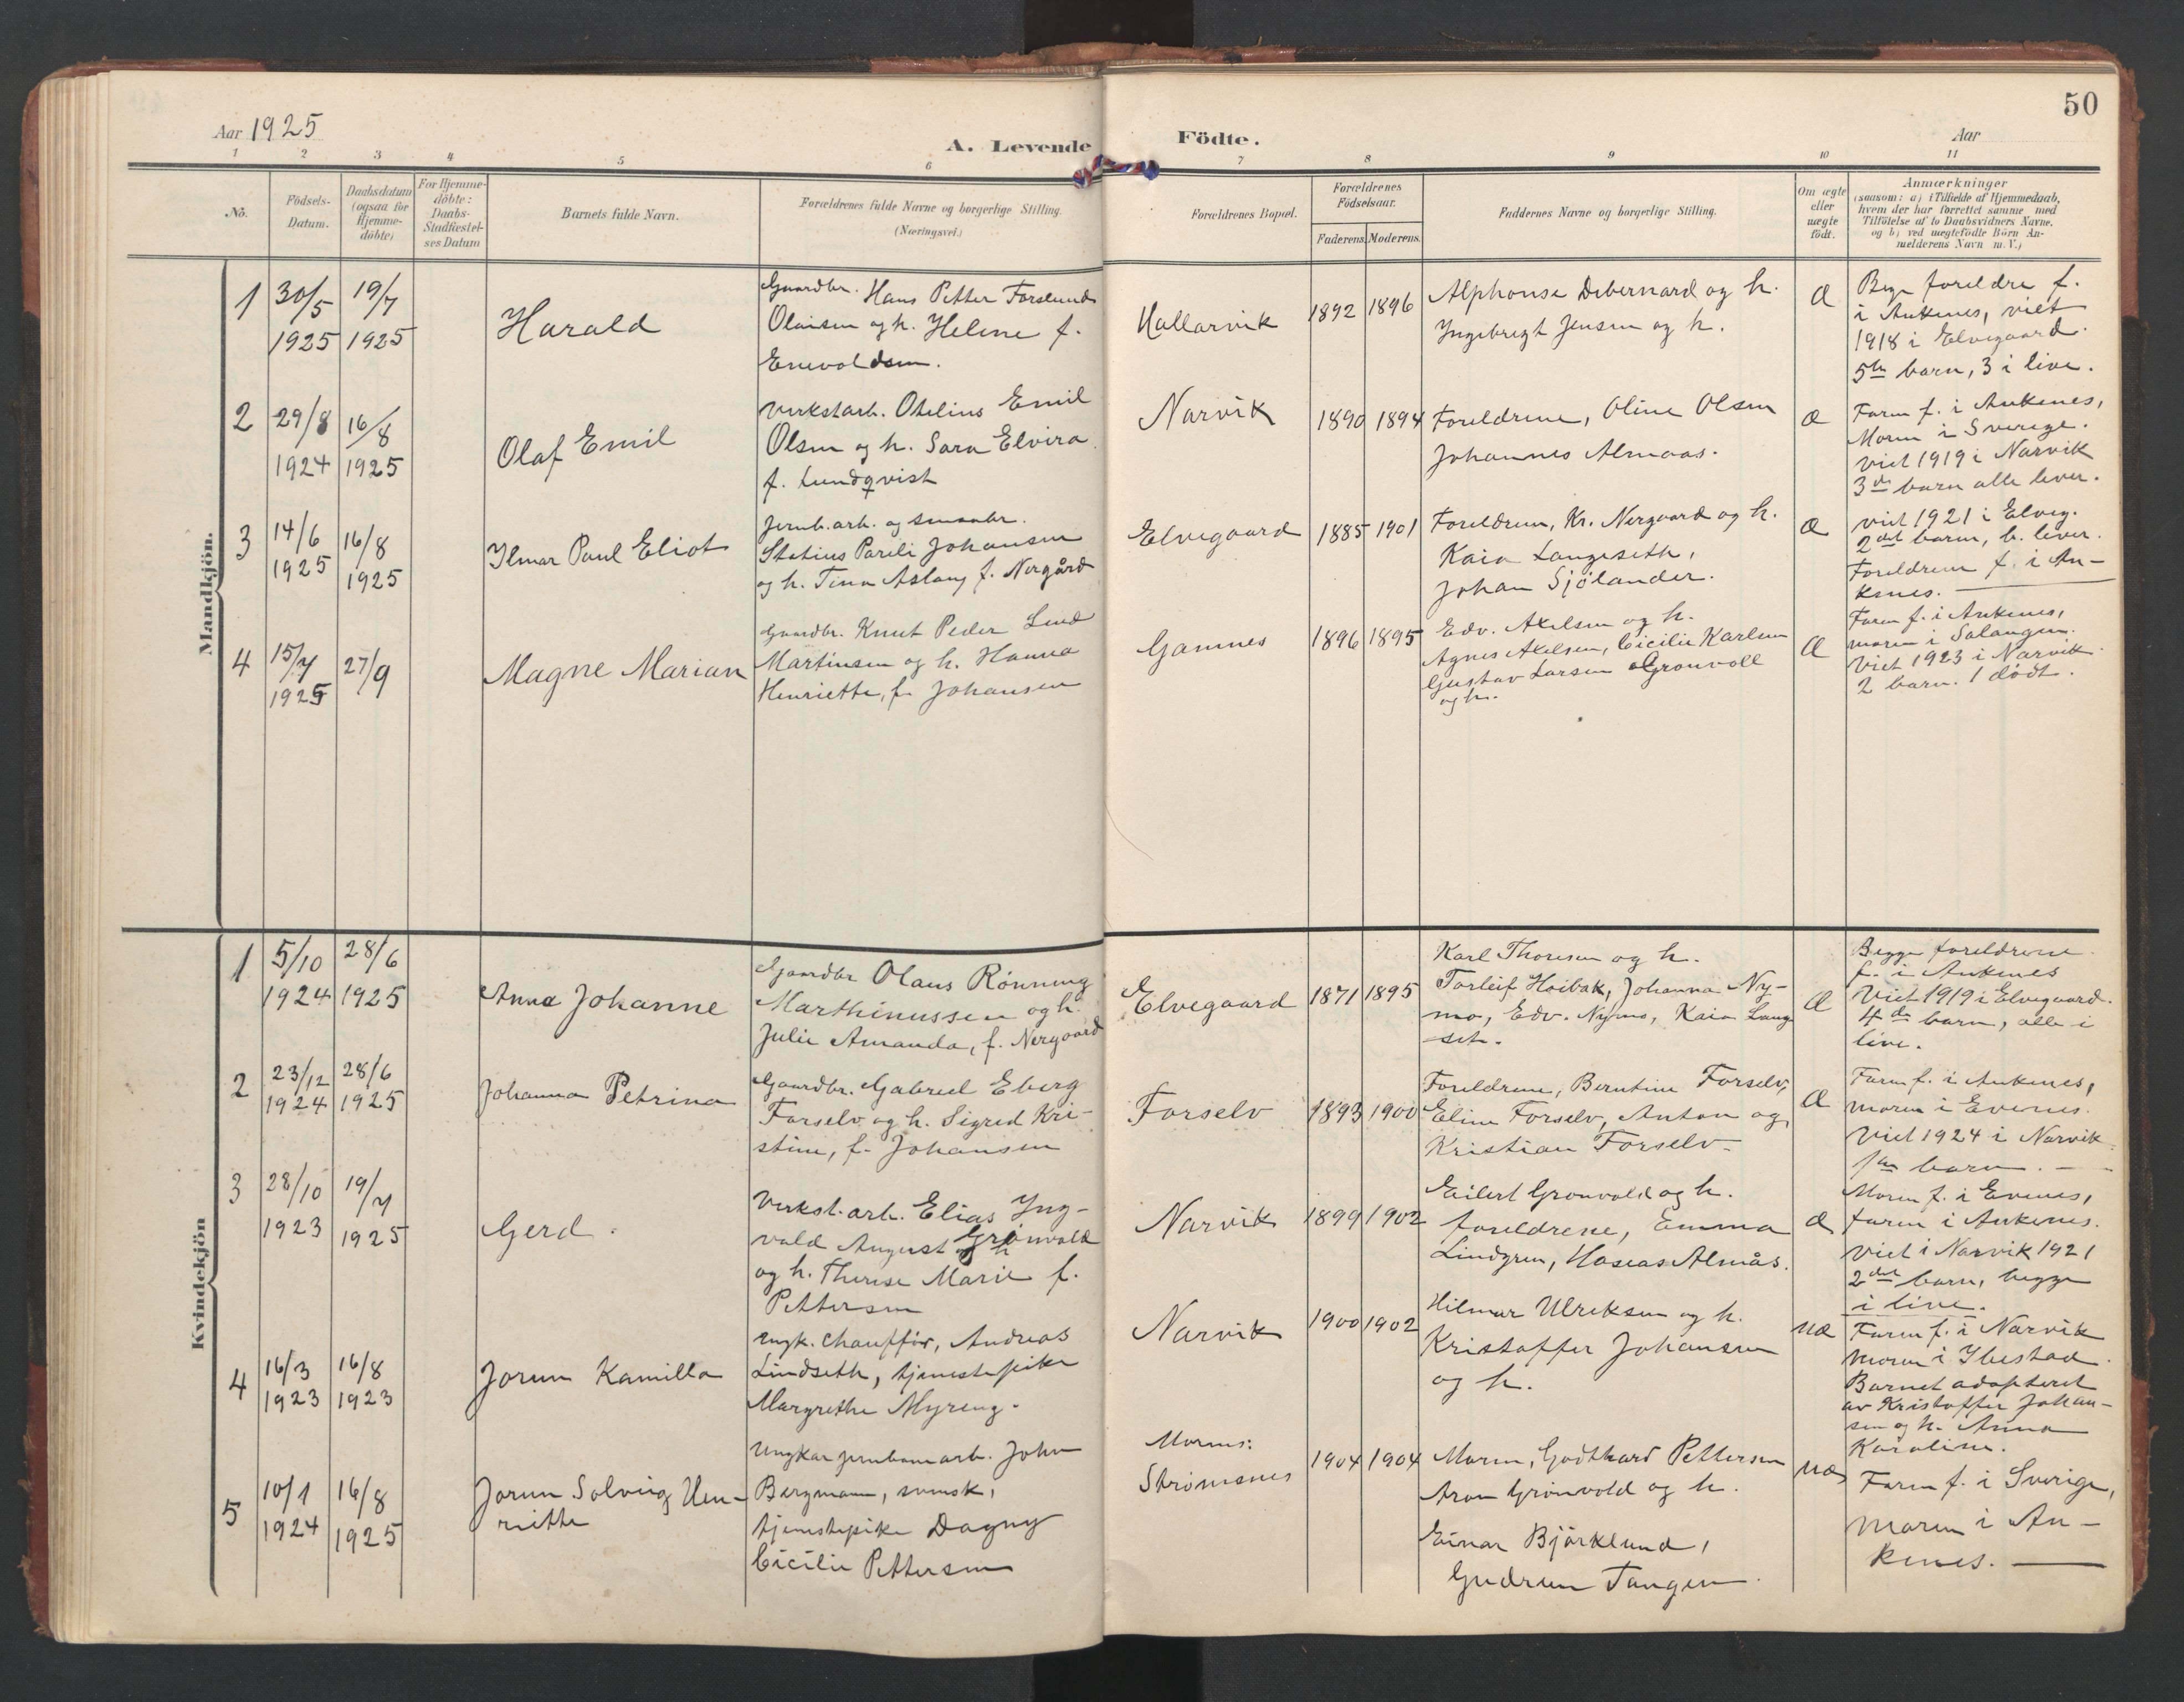 50
Aar 1925
A. Levende Födte.
Aar
1 2 3 4 5 6 7 8 9 10 11
No.
Födsels-
Datum.
Daabsdatum
(ogsaa for
Hjemme-
döbte)
For Hjemme-
döbte:
Daabs-
Stadfæstel-
ses Datum
Barnets fulde Navn.
Forældrenes fulde Navne og borgerlige Stilling.
(Næringsvei.)
Forældrenes Bopæl.
Forældrenes
Födselsaar.
Faderens. Moderens.
Faddernes Navne og borgerlige Stilling.
Om ægte
eller
uægte
födt.
Anmærkninger
(saasom: a) i Tilfælde af Hjemmedaab,
hvem der har forrettet samme med
Tilföielse af to Daabsvidners Navne.
og b) ved uægtefödte Börn An-
melderens Navn m. V.)
Mandkjön.
1
30/5
1925
19/7
1925
Harald
Gaardbr. Hans Petter Forslund
Olaisen og h. Helene f.
Enevoldsen.
Hallarvik
1892 1896
Alphonse Debernard og h.
Ingebrigt Jensen og h.
æ
Begge foreldre f.
i Ankenes, viet
1918 i Elvegaard.
5te barn, 3 i live.
2
29/8
1924
16/8
1925
Olaf Emil
Verkstarb. Otelius Emil
Olsen og h. Sara Elvira
f. Lundqvist
Narvik
1890 1894
Foreldrene, Oline Olsen
Johannes Almaas.
æ
Faren f. i Ankenes,
Moren i Sverige.
Viet 1919 i Narvik
3de barn alle lever.
3
14/6
1925
16/8
1925
Ilmar Paul Eliot
Jernb.arb. og smaabr.
Statius Pareli Johansen
og h. Tina Aslaug f. Nergård
Elvegaard
1885 1901
Foreldren, Kr. Nergaard og h.
Kaia Langeseth,
Johan Sjölander.
æ
viet 1921 i Elveg.
2det barn, b. lever.
Foreldren f. i An-
kenes.
4
15/7
1925
27/9
Magne Marian
Gaardbr. Knut Peder Lund
Martinsen og h. Hanna
Henriette, f. Johansen
Gamnes
1896 1895
Edv. Axelsen og h.
Agnes Axelsen, Cicilie Karlsen
Gustav Larsen Grønvoll
og h.
æ
Faren f. i Ankenes,
moren i Salangen.
Viet 1923 i Narvik.
2 barn. 1 dödt.
Kvindekjön
1
5/10
1924
28/6
1925
Anna Johanne
Gaardbr Olaus Rönning
Marthinussen og h.
Julie Amanda, f. Nergaard
Elvegaard
1871 1895
Karl Thoresen og h.
Torleif Hoibak, Johanna Ny-
mo, Edv. Nymo, Kaia Lang-
set.
æ
Begge foreldrene
f. i Ankenes
Viet 1919 i Elvegaard.
4de barn, alle i
live.
2
23/12
1924
28/6
1925
Johanna Petrina
Gaardbr. Gabriel Eberg
Forselv og h. Sigrid Kri-
stine, f. Johansen
Forselv
1893 1900
Foreldrene, Berntine Forselv,
Eline Forselv, Anton og
Kristian Forselv.
æ
Faren f. i Ankenes,
moren i Evenes.
Viet 1924 i Narvik.
1ste barn.
3
28/10
1923
19/7
1925
Gerd.
Verkst.arb. Elias Yng-
vald August Grönvold
og h. Therese Marie f.
Pettersen
Narvik
1899 1902
Eilert Gronvold og h.
foreldrene, Emma
Lindgren, Hoseas Almås.
æ
Moren f. i Evenes,
faren i Ankenes.
viet i Narvik 1921
2det barn, begge
i live.
4
16/3
1923
16/8
1923
Jorun Kamilla
ungk. chauffør, Andreas
Lindseth, tjenestepike
Margrethe Myreng.
Narvik
1900 1902
Hilmar Ulriksen og h.
Kristoffer Johansen
og h.
uæ
Faren f. i Narvik
moren i Ibestad.
Barnet adopteret
av Kristoffer Johan-
sen og h. Anna
Karoline.
5
10/1
1924
16/8
1925
Jorun Solveig Hen-
riette
Ungkar jernbanearb. John
Bergmann, svensk,
tjenestepike Dagny
Cicilie Pettersen
Morens:
Strømsnes
1904 1904
Moren, Godthard Pettersen
Aron Grönvold og h.
Einar Björklund,
Gudrun Tangen.
uæ
Faren f. i Sverige,
moren i An-
kenes.